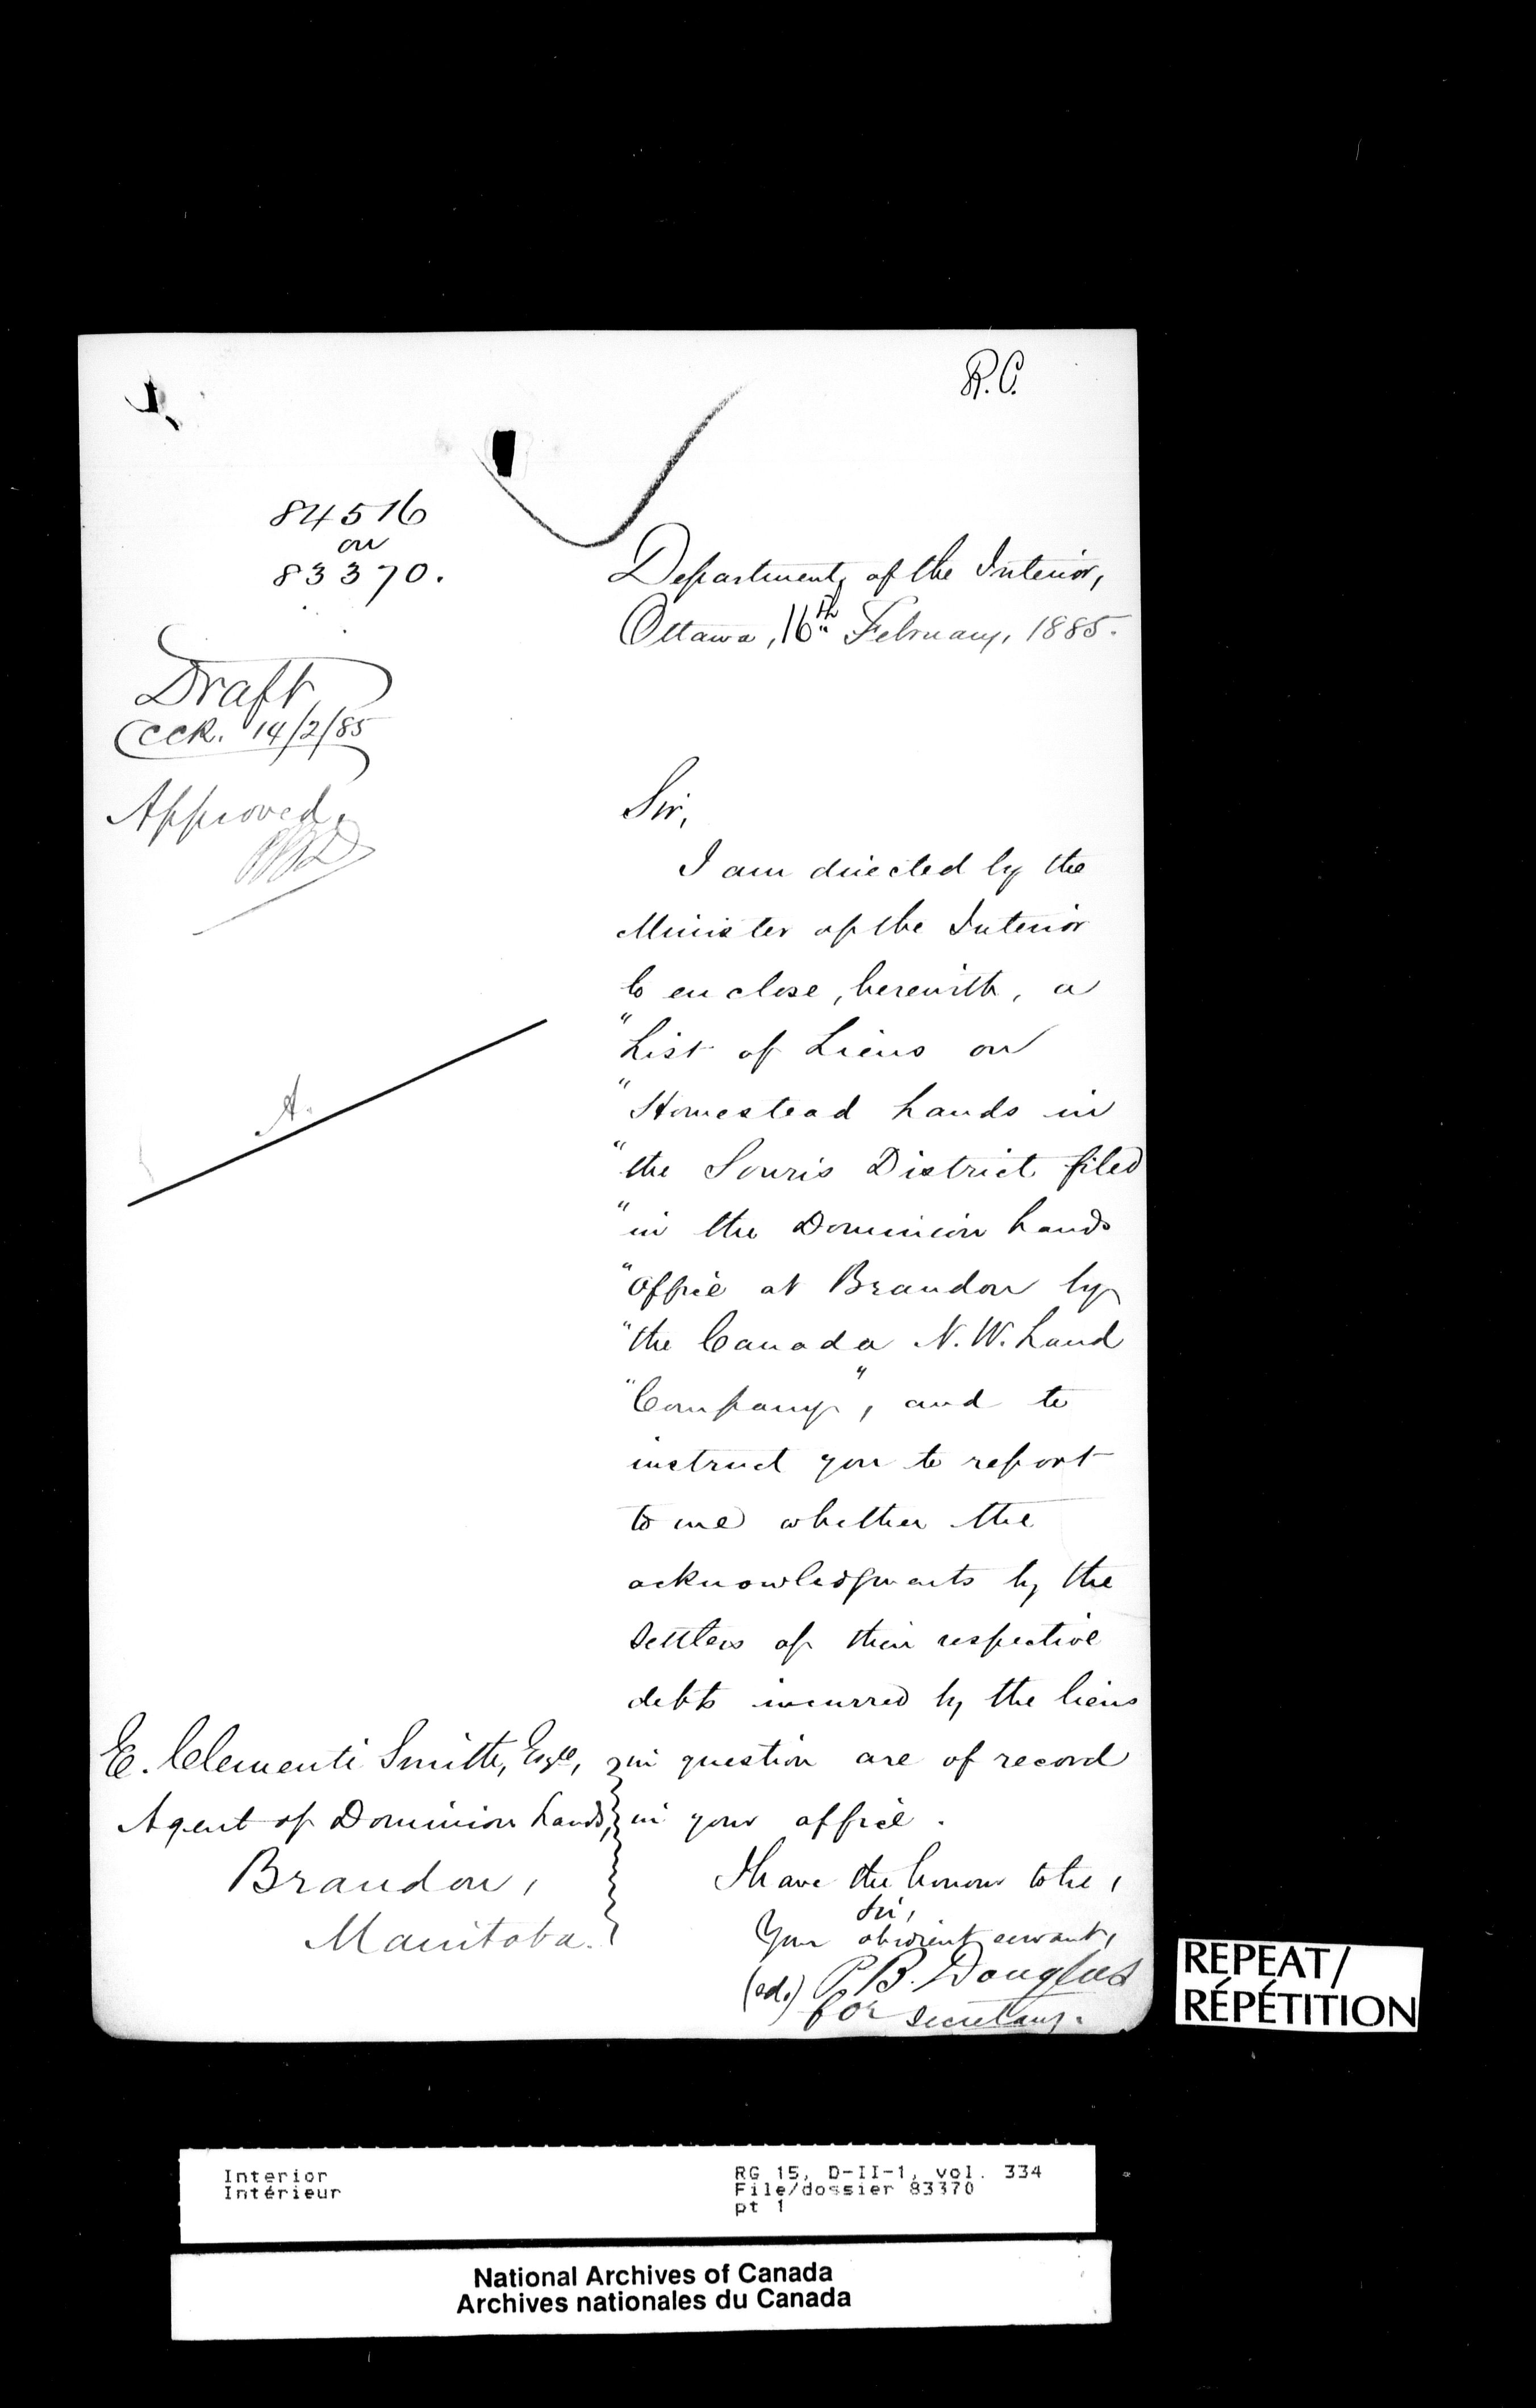 R.C.
84516
on
83370.
Department of the Interior,
Ottawa, 16th February, 1885.
Draft
CCR. 14/2/85
Approved,
Sir,
I am directed by the
Minister of the Interior
to enclose, herewith, a
"List of Liens on
"Homestead Lands in
"the Souris District filed
"in the Dominion Lands
"Office at Brandon by
"the Canada N.W. Land
"Company", and to
instruct you to report
to me whether the
acknowledgments by the
settlers of their respective
debts incurred by the liens
in question are of record
in your office.
A.
E. Clementi Smith, Esqre,
Agent of Dominion Lands,
Brandon,
Manitoba.
I have the honour to be,
Sir,
Your obedient servant,
(sd.) P.B. Douglas
for Secretary.
REPEAT/
RÉPÉTITION
Interior
Intérieur
RG 15, D-II-1, vol. 334
File/dossier 83370
pt 1
National Archives of Canada
Archives nationales du Canada